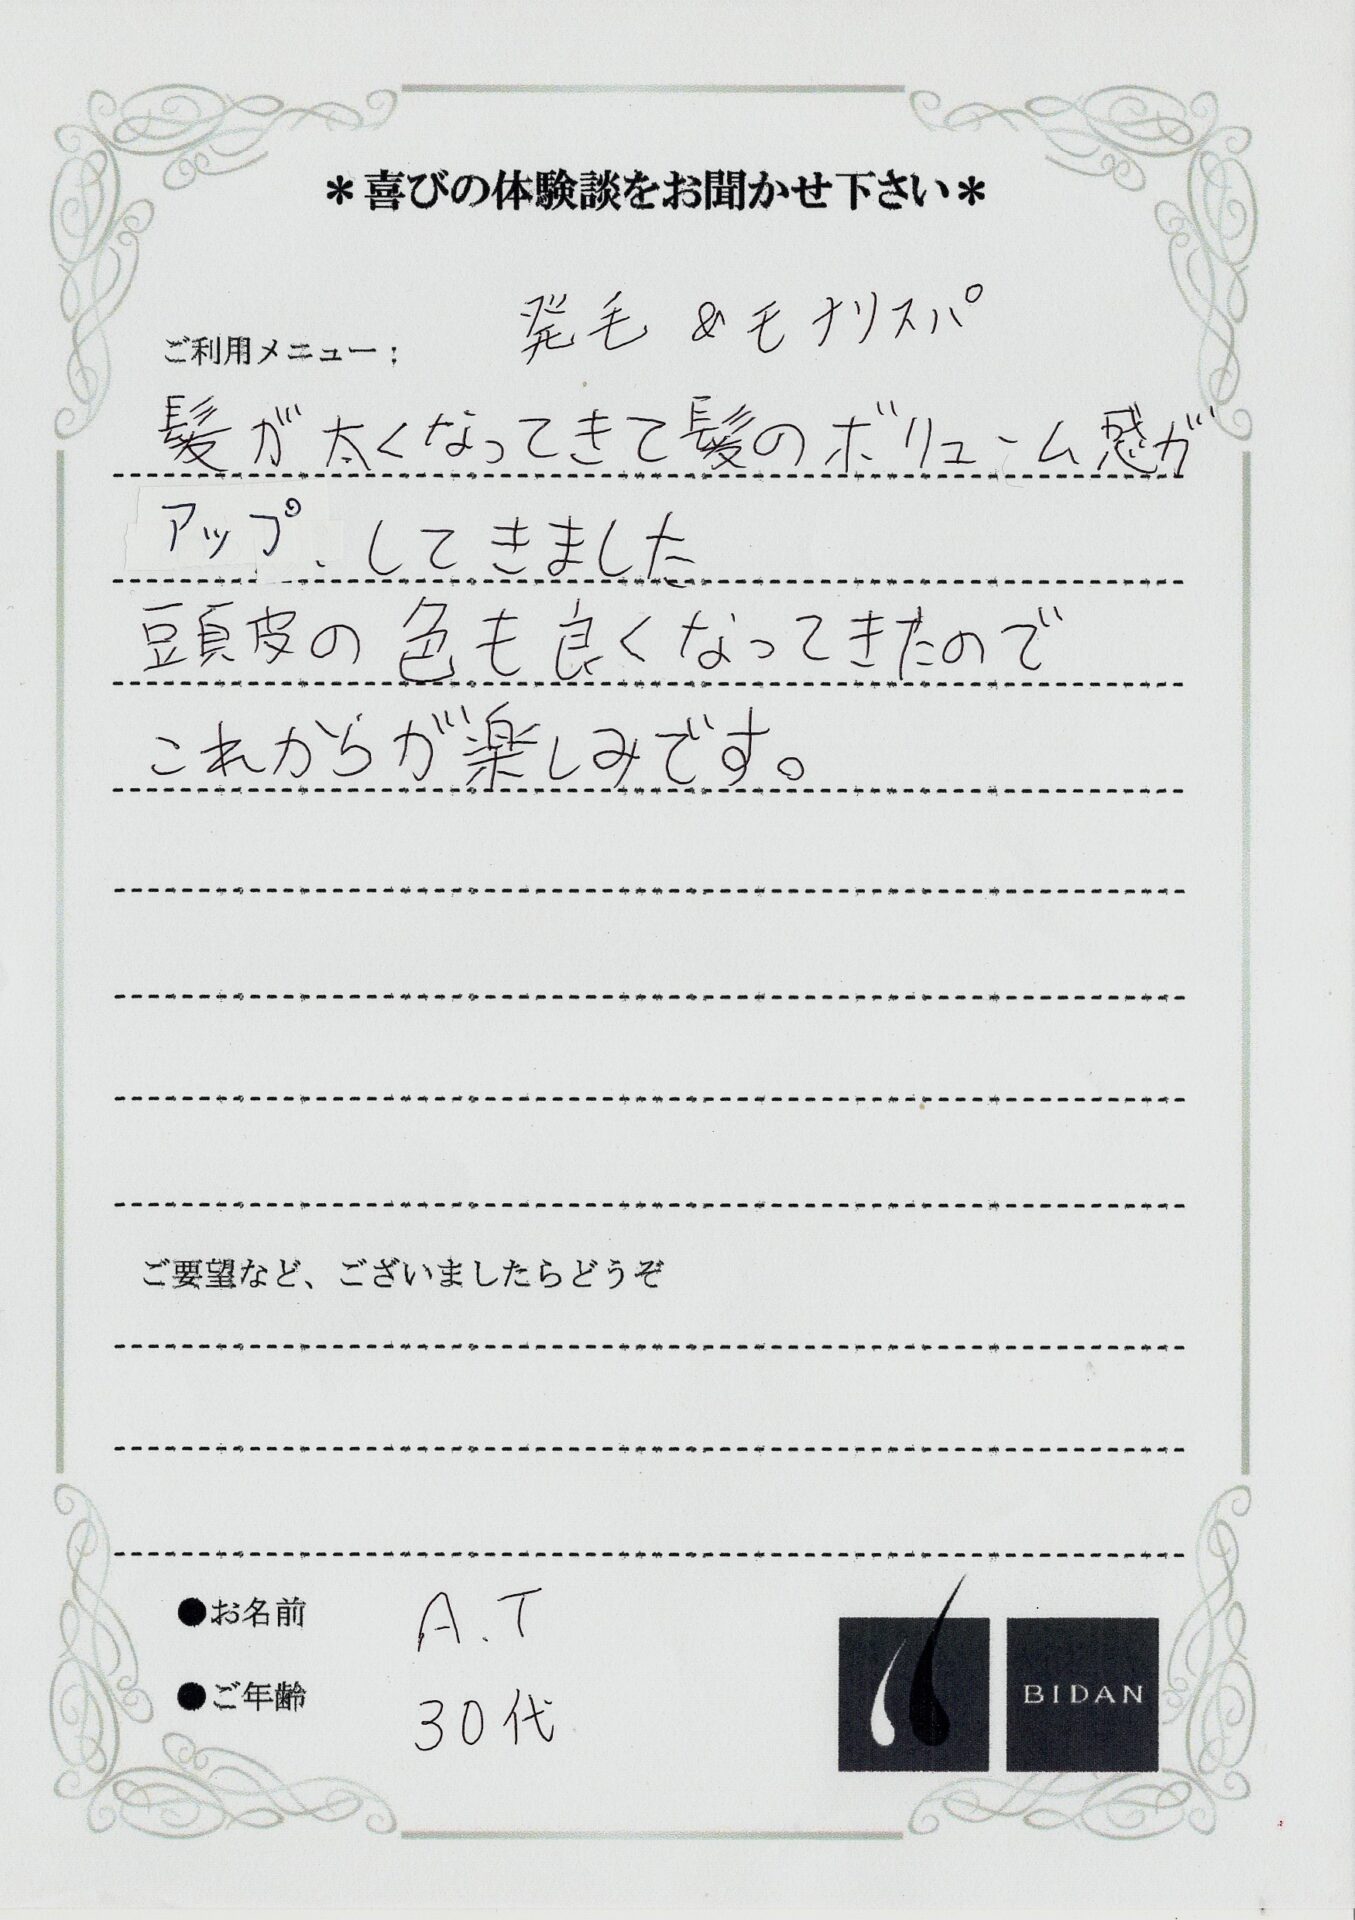 ＊喜びの体験談をお聞かせ下さい＊
ご利用メニュー： 発毛 & モナリスパ
髪が太くなってきて髪のボリューム感が
アップしてきました
頭皮の色も良くなってきたので
これからが楽しみです。
ご要望など、ございましたらどうぞ
●お名前 A.T
●ご年齢 30代
BIDAN